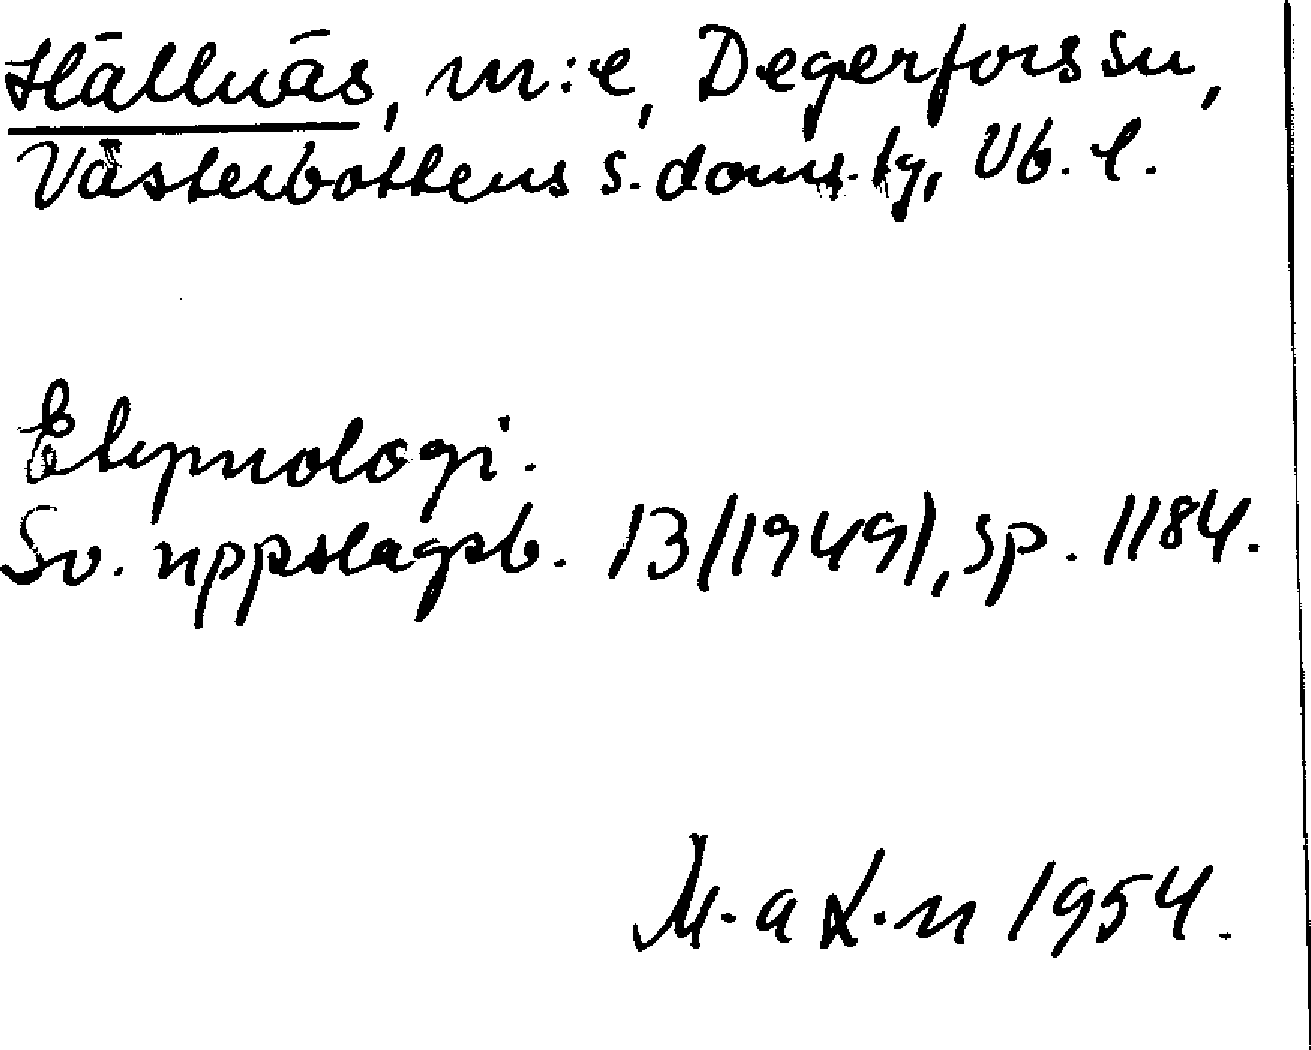 Hällnäs, m:e, Degerfors sn,
Västerbottens s. doms. tg, Vb. l.
Etymologi.
Sv. uppslagsb. 13 (1949), sp. 1184.
1954.